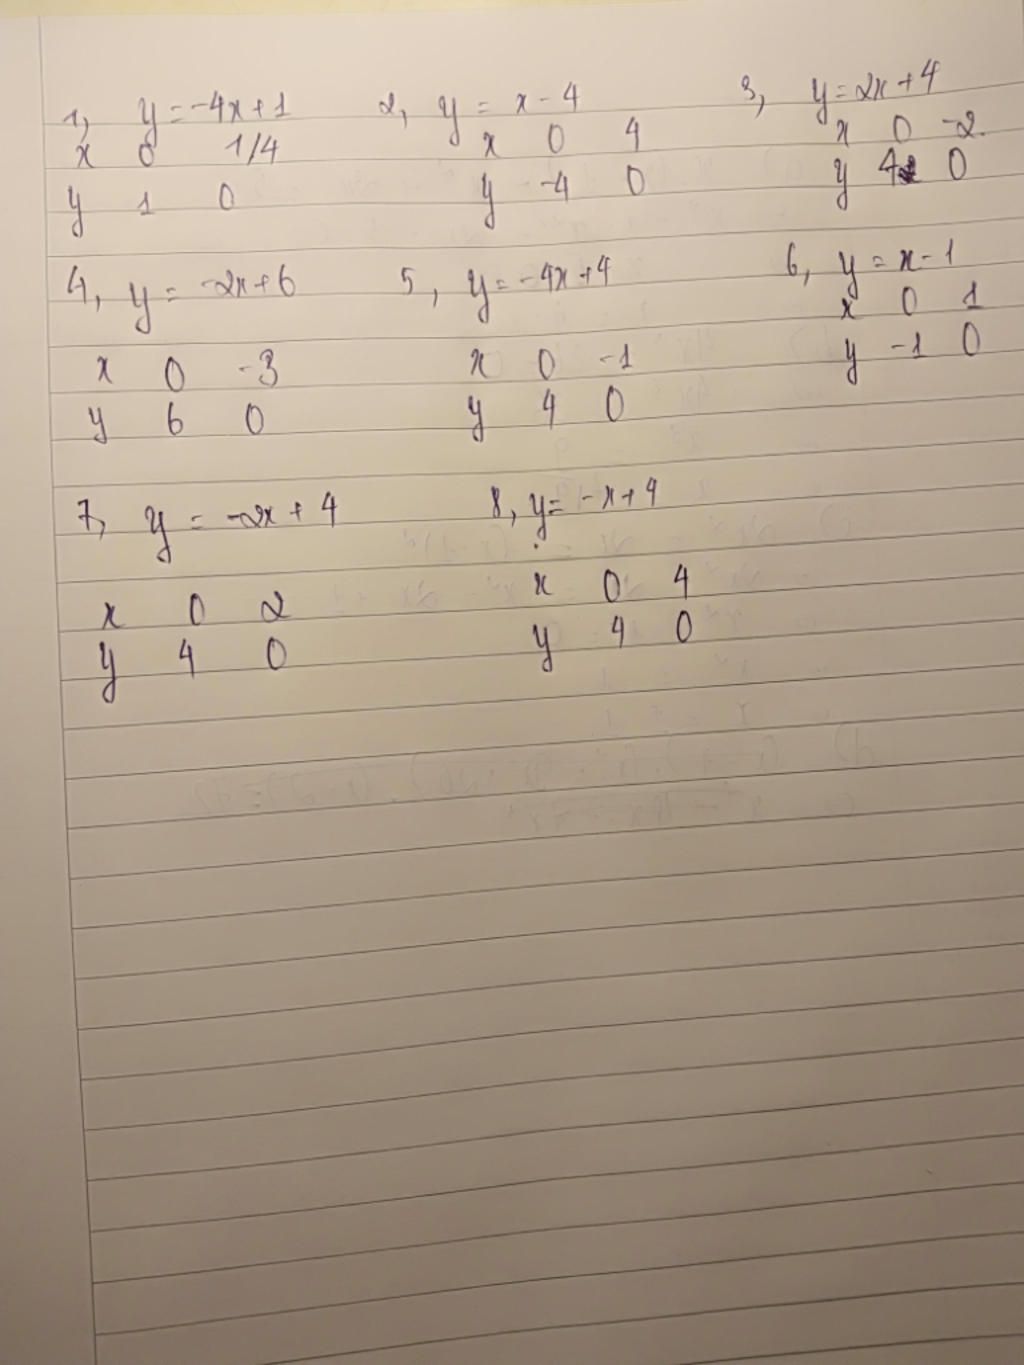 1, y = -4x + 1
x 0 1/4
y 1 0
2, y = x - 4
x 0 4
y -4 0
3, y = 2x + 4
x 0 -2
y 4 0
4, y = -2x + 6
x 0 -3
y 6 0
5, y = -4x + 4
x 0 -1
y 4 0
6, y = x - 1
x 0 1
y -1 0
7, y = -2x + 4
x 0 2
y 4 0
8, y = -x + 4
x 0 4
y 4 0